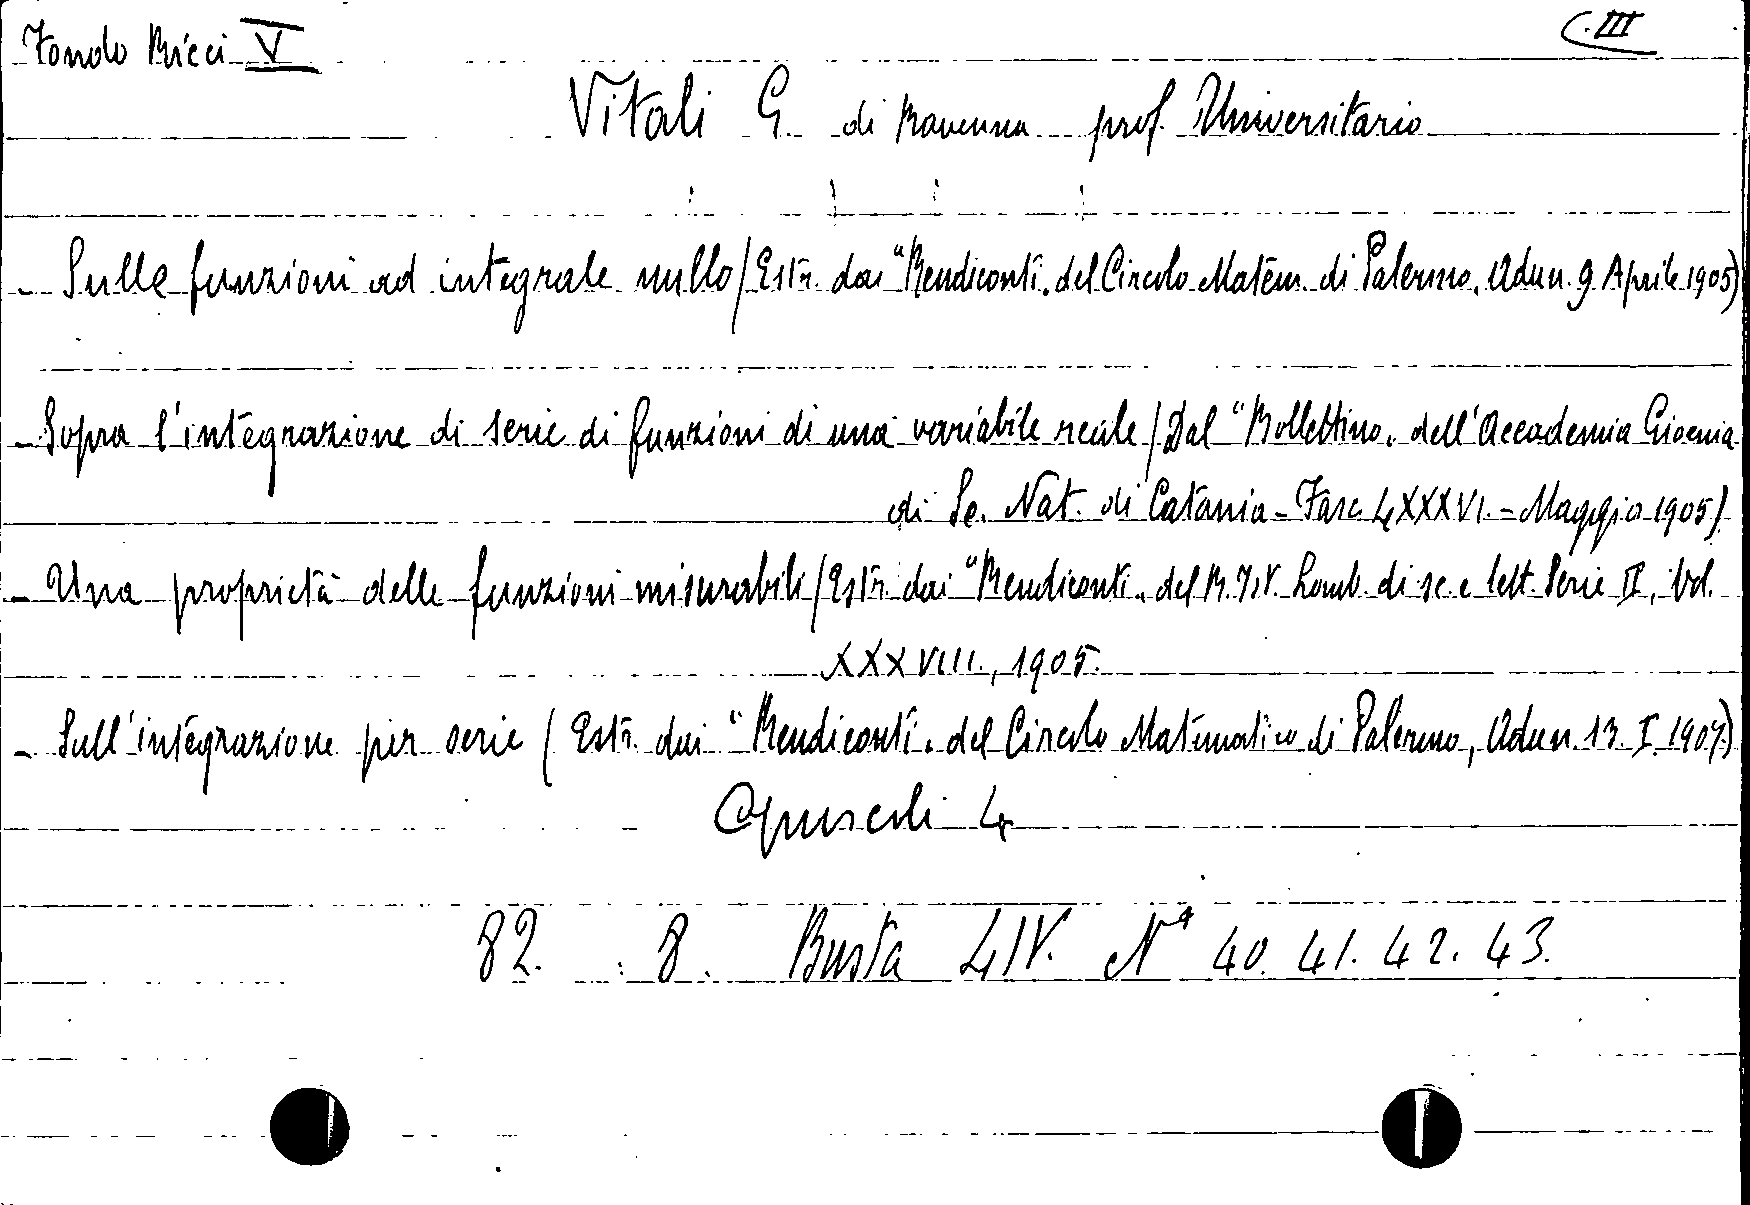 Fondo Ricci V
C.III
Vitali G. di Ravenna prof. Universitario
- Sulle funzioni ad integrale nullo (Estr. dai "Rendiconti" del Circolo Matem. di Palermo, Adun. 9 Aprile 1905)
- Sopra l'integrazione di serie di funzioni di una variabile reale (Dal "Bollettino" dell'Accademia Gioenia
di Sc. Nat. di Catania - Fasc. LXXXVI. - Maggio 1905)
- Una proprietà delle funzioni misurabili (Estr. dai "Rendiconti" del R. Ist. Lomb. di sc. e lett. Serie II, Vol.
XXXVIII., 1905.
- Sull'integrazione per serie (Estr. dai "Rendiconti" del Circolo Matematico di Palermo, Adun. 13. I. 1907.)
Opuscoli 4
82. 8. Busta LIV. Nⁱ 40. 41. 42. 43.